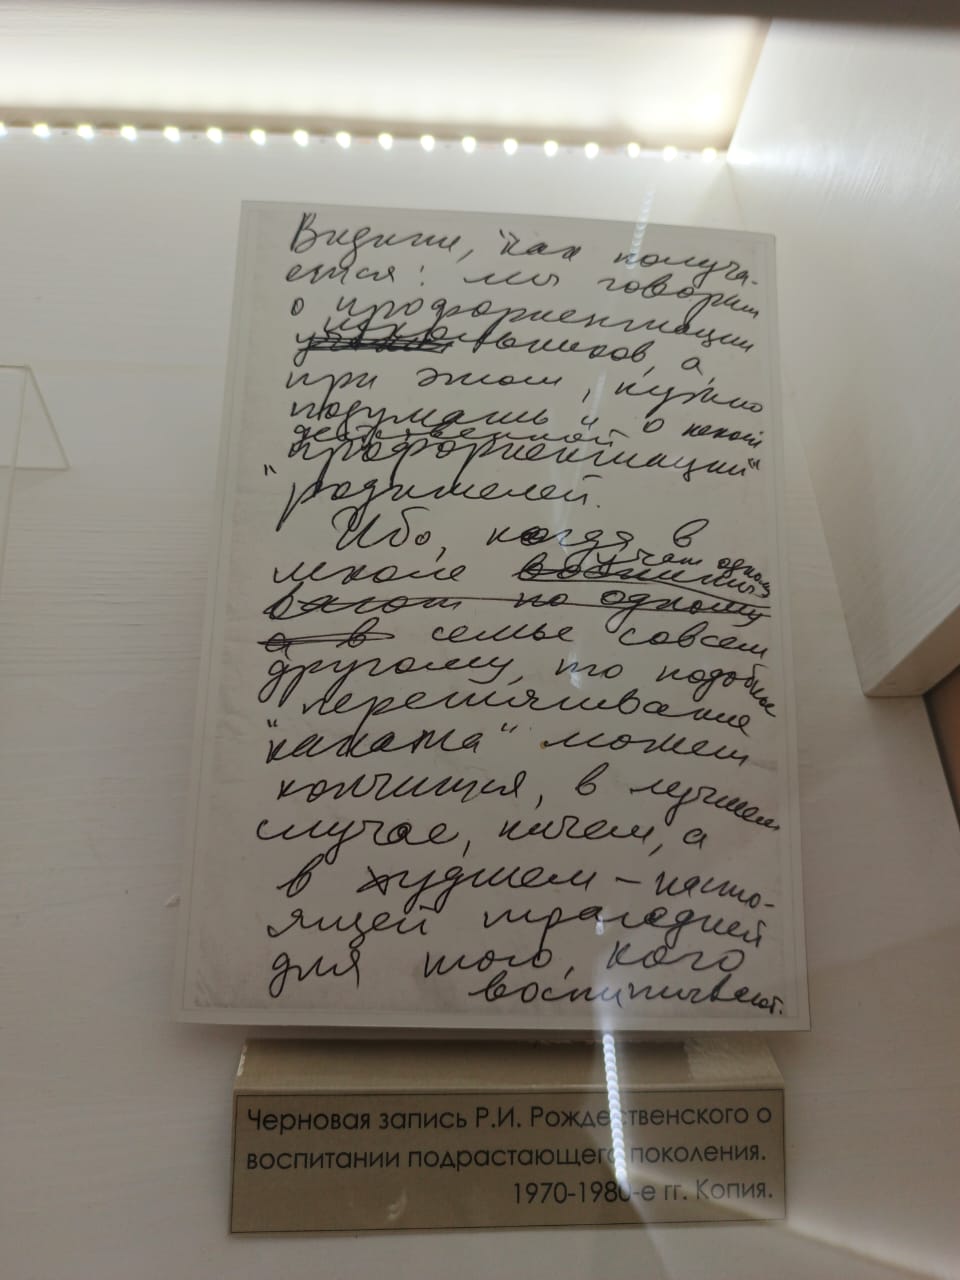 Видите, как получа-
ется: мы говорим
о профориентации
школьников, а,
при этом, нужно
подумать и о некой
действенной
"профориентации"
родителей.
Ибо, когда в
школе учат одному,
воспитывают по одному
а в семье совсем
другому, то подобные
"перетягивание
каната" может
кончиться, в лучшем
случае, ничем, а
в худшем – насто-
ящей трагедией
для того, кого
воспитывают.
Черновая запись Р.И. Рождественского о
воспитании подрастающего поколения.
1970-1980-е гг. Копия.